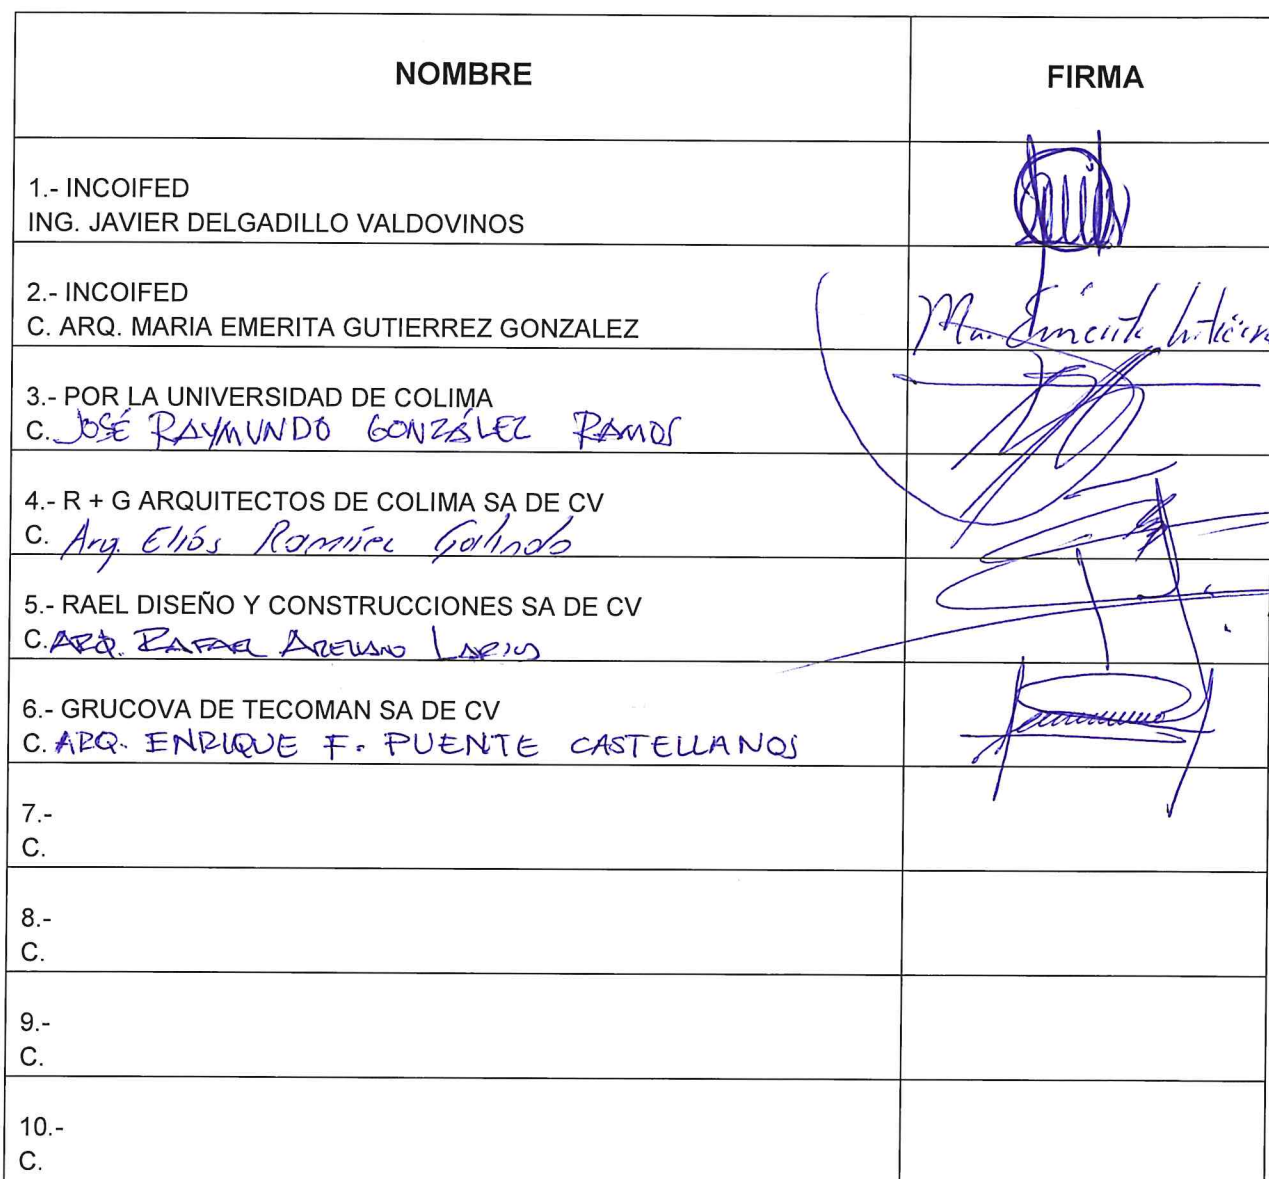 NOMBRE
FIRMA
1.- INCOIFED
ING. JAVIER DELGADILLO VALDOVINOS
2.- INCOIFED
C. ARQ. MARIA EMERITA GUTIERREZ GONZALEZ
Ma. Emerita Gutiérre
3.- POR LA UNIVERSIDAD DE COLIMA
C. JOSÉ RAYMUNDO GONZÁLEZ RAMOS
4.- R + G ARQUITECTOS DE COLIMA SA DE CV
C. Arq. Elías Ramírez Galindo
5.- RAEL DISEÑO Y CONSTRUCCIONES SA DE CV
C. ARQ. RAFAEL ARELLANO LARIOS
6.- GRUCOVA DE TECOMAN SA DE CV
C. ARQ. ENRIQUE F. PUENTE CASTELLANOS
7.-
C.
8.-
C.
9.-
C.
10.-
C.